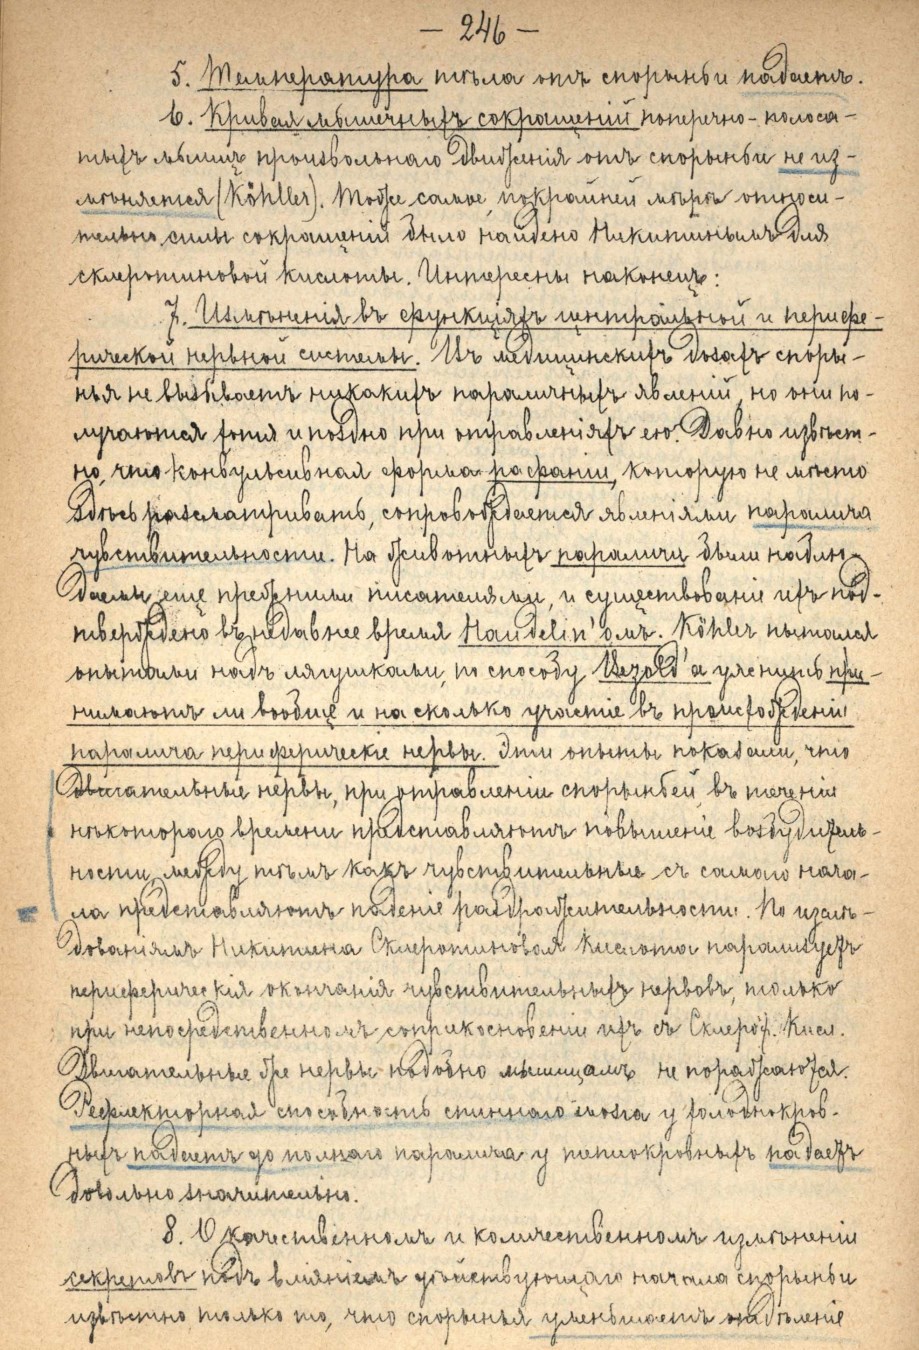 — 246 —
5. Температура тѣла отъ спорыньи падаетъ.
6. Кривая мышечныхъ сокращеній поперечно-полоса-
тыхъ мышцъ произвольнаго движенія отъ спорыньи не из-
мѣняется (Köhller). Тоже самое, покрайней мѣрѣ относи-
тельно силы сокращеній было найдено Никитинымъ для
склеротиновой кислоты. Интересны наконецъ:
7. Измѣненія въ функціяхъ центральной и перифе-
рической нервной системы. Въ медицинскихъ дозахъ споры-
нья не вызываетъ никакихъ параличныхъ явленій, но они по-
лучаются хотя и поздно при отравленіяхъ ею. Давно извѣст-
но, что конвульсивная форма рафаніи, которую не мѣсто
здѣсь разсматривать, сопровождается явленіями паралича
чувствительности. На животныхъ параличи были наблю-
даемы еще прежними писателями, и существованіе ихъ под-
тверждено въ недавнее время Haudelin'омъ. Köhler пытался
опытами надъ лягушками, по способу Bezold'а уяснить при-
нимаютъ ли вообще и на сколько участіе въ происхожденіи
паралича периферическіе нервы. Эти опыты показали, что
двигательные нервы, при отравленіи спорыньей, въ теченіи
нѣкотораго времени представляютъ повышеніе возбудитель-
ности, между тѣмъ какъ чувствительные съ самаго нача-
ла представляютъ паденіе раздражительности. По изслѣ-
дованіямъ Никитина Склеротиновая кислота парализуетъ
периферическія окончанія чувствительныхъ нервовъ, только
при непосредственномъ соприкосновеніи ихъ съ Склерот. Кисл.
Двигательные же нервы подобно мышцамъ не поражаются.
Рефлекторная способность спиннаго мозга у холоднокров-
ныхъ падаетъ до полнаго паралича у теплокровныхъ падаетъ
довольно значительно.
8. О качественномъ и количественномъ измѣненіи
секретовъ подъ вліяніемъ дѣйствующаго начала спорыньи
извѣстно только то, что спорынья уменьшаетъ отдѣленіе